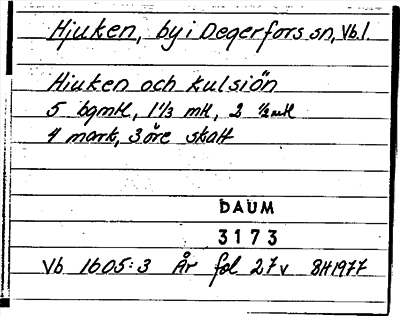 Hjuken, by i Degerfors sn, Vb.l.
Hiuken och Kulsiön
5 bgmtl, 1 1/3 mtl, 2 1/2 mtl
4 mark, 3 öre skatt
DAUM
3173
Vb 1605:3 År fol 27v BH1977